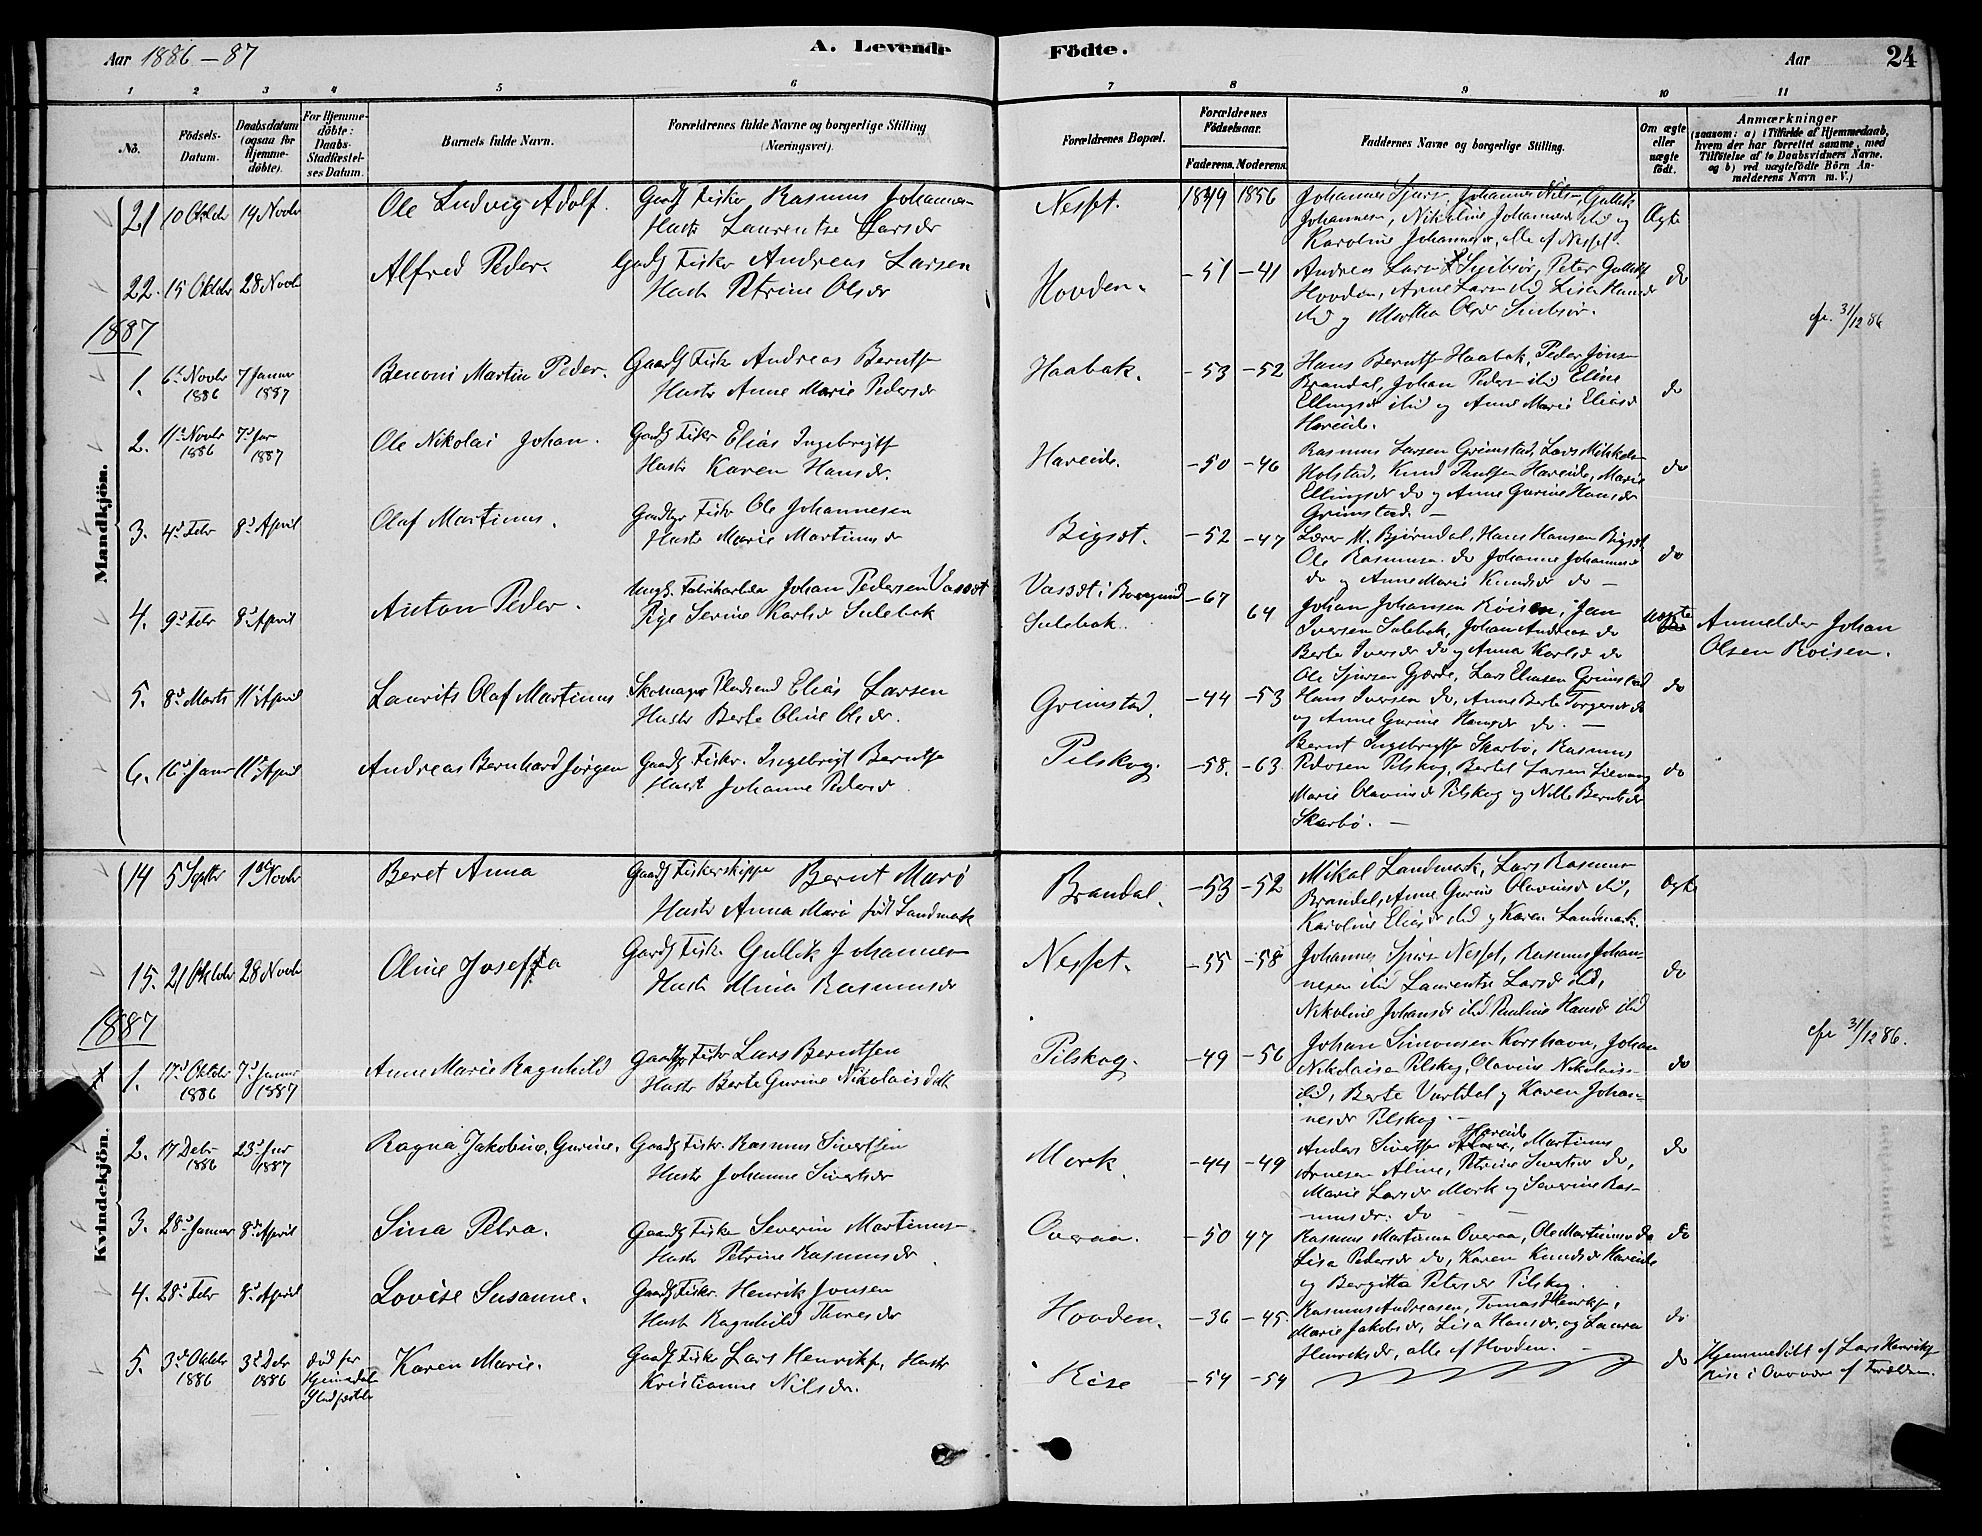 Aar 1886-87
A. Levende
Födte.
Aar
24
1 2 3 4 5 6 7 8 9 10 11
No.
Födsels-Datum.
Daabsdatum (ogsaa for Hjemme-döbte).
For Hjemme-döbte: Daabs-Stadfæstel-ses Datum.
Barnets fulde Navn.
Forældrenes fulde Navne og borgerlige Stilling
(Næringsvei).
Forældrenes Bopæl.
Forældrenes Födselsaar.
Faderens. Moderens.
Faddernes Navne og borgerlige Stilling.
Om ægte eller uægte födt.
Anmærkninger
(saasom: a) i Tilfælde af Hjemmedaab,
hvem der har forrettet samme, med
Tilföielse af to Daabsvidners Navne.
og b) ved uægtefödte Börn An-
melderens Navn m. V.)
Mandkjön.
21 10 Oktbr 14 Novbr Ole Ludvig Adolf. Gaardb Fisker Rasmus Johannes-
Hustr Laurentse Larsdr
Nesset. 1849 1856 Johannes Sjurs-, Johannes Nils- Gullik
Johannesen, Nikoline Johannesdr ibid og
Karoline Johannesdr, alle af Nesset.
Ægte
22. 15 Oktbr 28 Novbr Alfred Peder. Gaardb Fisker Andreas Larsen
Hustr Petrine Olsdr
Hovden. -51 -41 Andreas Lars-, Peter Gullikss
Hovden, Arne Larsen ibid Lisa Hansdr
ibid og Martha Olsdr
do
cfr. 31/12 86
1887
1. 6te Novbr 1886 7 Januar 1887 Benoni Martin Peder. Gaardb Fisker Andreas Berntss
Hustr Anne Marie Pedersdr
Haabak. -53 -52 Hans Berntss Haabak, Peder Jøns-
Brandal, Johan Peders- ibid Eline
Ellingsdr ibid og Anne Marie Eliasdr
Hareide.
do
2. 11te Novbr 1886 7d Jar 1887 Ole Nikolai Johan. Gaardb Fisker Elias Ingebrigtss
Hustr Karen Hansdr.
Hareide. -50 -46 Rasmus Larsen Grimstad, Lars Mikkels-
Holstad, Knud Paulsen Hareide, Marie
Ellingsdr do og Anne Gurine Hansdr
Grimstad. -
do
3. 4d Febr 8d April Olaf Martinus. Gaardbr Fisker Ole Johannesen
Hustr Marie Martinusdr
Bigset. -52 -47 Lærer M. Bjørndal, Hans Hansen Bigset,
Ole Rasmusen do Johanne Johannesdr
do og Anne Marie Knudsdr do -
do
4. 9d Febr 8d April Anton Peder. Ungk. Fabrikarbeider Johan Pedersen Vasset
Pige Serine Karlsdr Sulebak
Vasset i Borgund
Sulebak. -67 64 Johan Johansen Röisen, Jan
Iversen Sulebak, Johan Andreas do
Berte Iversdr do og Anna Karlsdr do
uægte
Anmelder Johan
Olsen Roisen.
5. 8d Marts 11te April Laurits Olaf Martinus Skomager Pladsmd Elias Larsen
Hustr Berte Oline Olsdr.
Grimstad. -44 -53 Ole Sjursen Gjerde, Lars Eliasen Grimstad
Hans Iversen do, Anne Berte Torgersdr do
og Anne Gurine Hansdr do. -
do
6. 16d Janr 11te April Andreas Bernhard Jørgen Gaardb Fisker. Ingebrigt Berntss
Hustr Johanne Pedersdr
Pilskog. -58. -63 Bernt Ingebrigtss Skarbø, Rasmus
Pedersen Pilskog, Bertel Larsen
Marie Olavusdr Pilskog og Nille Berntsdr
Skarbø. -
do
Kvindekjön.
14 5 Septbr 1ste Novbr Beret Anna Gaardb Fiskerskipper Bernt Marø
Hustr Anna Marø født Landmark
Brandal. -53 -52 Mikal Landmark, Lars Rasmus-
Brandal, Anne Gurine Olavusdr ibid,
Karoline Eliasdr ibid og Karen Landmark.
Ægte
15. 21 Oktbr 28 Novbr Oline Joseffa Gaardb Fisker Gullik Johannes-
Hustr Mina Rasmusdr
Nesset. -55 -58 Johannes Sjurs- Nesset, Rasmus Johan-
nesen ibid Laurentse Larsdr ibid,
Nikoline Johansdr ibid Pauline Hansdr ibid
do
1887
cfr 31/12 86.
1. 17d Oktbr 1886 7d Januar 1887 Anne Marie Ragnhild Gaardbr Fisker Lars Berntsen
Hustr Berte Gurine Nikolaisdtr
Pilskog. -49 -56 Johan Simonsen Korshavn, Johan
Nikolaisen Pilskog, Olavus Nikolais-
ibid, Berte Vartdal og Karen Johan-
nesdr Pilskog. -
do
2. 17 Debr 1886 23d Jar 1887 Ragna Jakobine Gurine. Gaardb Fisker. Rasmus Sivertsen
Hustr Johanne Sivertsdr
Mork. -44 -49 Anders Sivertss Hareide, Martinus
Arnesen Aline, Petrine Sivertsdr do,
Marie Larsdr Mork og Severine Ras-
musdr. do -
do
3. 28d Januar 8de April Sina Petra. Gaardb Fisker Severin Martinus-
Hustr Petrine Rasmusdr
Overaa. -50 47 Rasmus Martinusen Overaa, Ole Martinusen do
Lisa Pedersdr do, Karen Knudsdr Hareide
og Bergitta Petersdr Pilskog.
do
4. 28d Febr 8d April Lovise Susanne. Gaardb Fisker. Henrik Jonsen
Hustr Ragnhild Thoresdr
Hovden. -36 -45 Rasmus Andreasen, Tomas Henrikss,
Marie Jakobsdr, Lisa Hansdr, og Laura
Henriksdr, alle af Hovden. -
do
5. 3d Oktbr 1886 3d Debr 1886 død før Hjemmedaabs Stadfæstelse Karen Marie. Gaardb Fisker Lars Henrikss, Hustr
Kristianne Nilsdr.
Rise -54 -54
do
Hjemmedöbt af Lars Henrikss
Rise i Overvær af Forældrene.